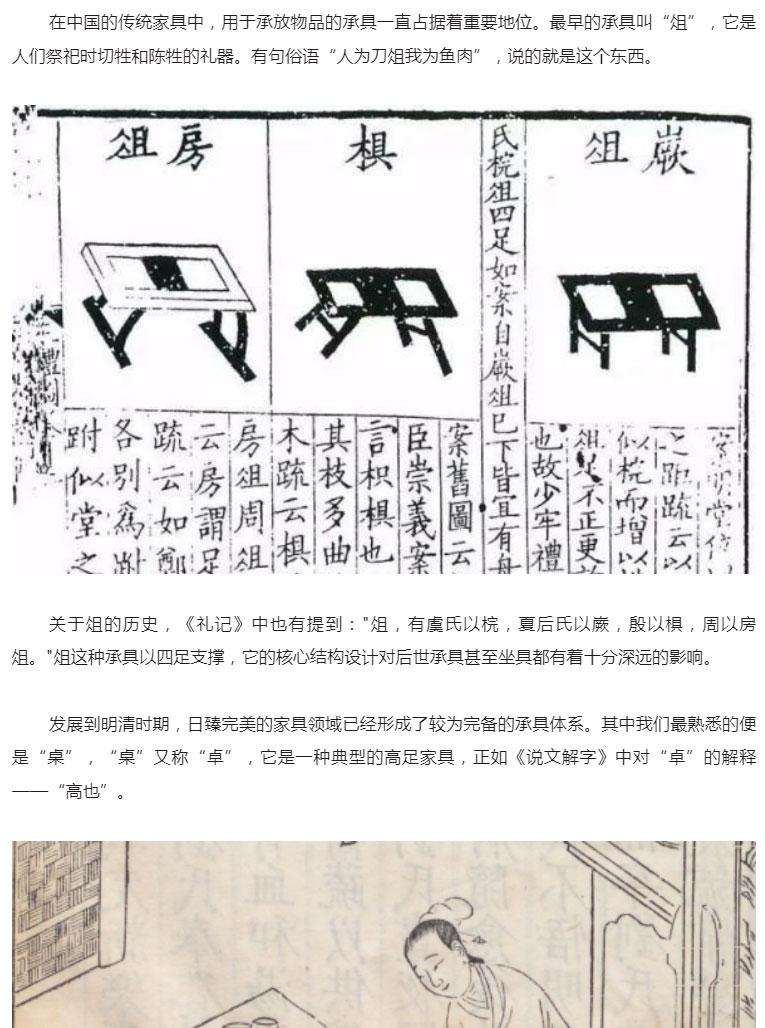 在中国的传统家具中，用于承放物品的承具一直占据着重要地位。最早的承具叫“俎”，它是
人们祭祀时切牲和陈牲的礼器。有句俗语“人为刀俎我为鱼肉”，说的就是这个东西。
嶡俎
氏梡俎四足如案自嶡俎已下皆宜有舟
椇
房俎
之距疏云以
似梡而增以
俎足不正更
也故少牢禮
案舊圖云
臣崇義案
言枳椇也
其枝多曲
木疏云椇
房俎周俎
云房謂足
疏云如鄭
各别爲跗
跗似堂之
关于俎的历史，《礼记》中也有提到："俎，有虞氏以梡，夏后氏以嶡，殷以椇，周以房
俎。"俎这种承具以四足支撑，它的核心结构设计对后世承具甚至坐具都有着十分深远的影响。
发展到明清时期，日臻完美的家具领域已经形成了较为完备的承具体系。其中我们最熟悉的便
是“桌”，“桌”又称“卓”，它是一种典型的高足家具，正如《说文解字》中对“卓”的解释
——“高也”。